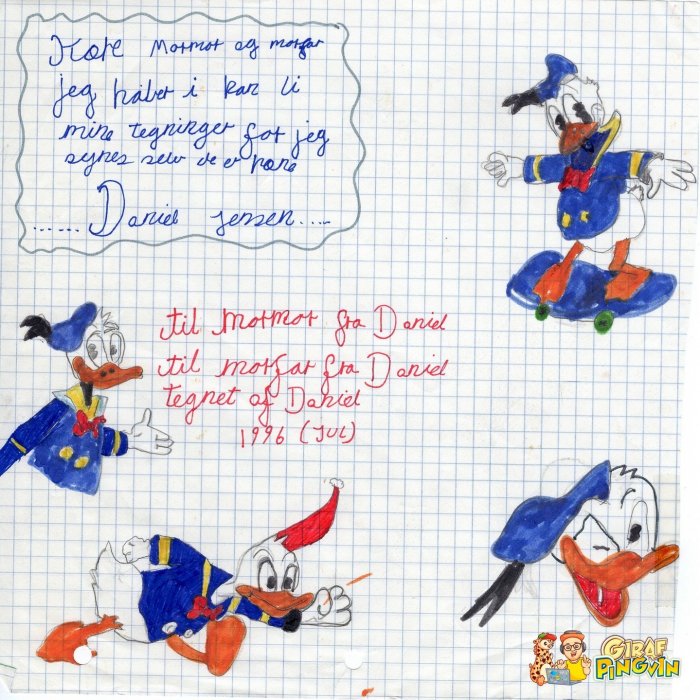 Kære Mormor og morfar
jeg håber i kan li
mine tegninger for jeg
synes selv de er pæne
...... Daniel Jensen.....
til Mormor fra Daniel
til morfar fra Daniel
tegnet af Daniel
1996 (JUL)
GIRAF
PiNGViN